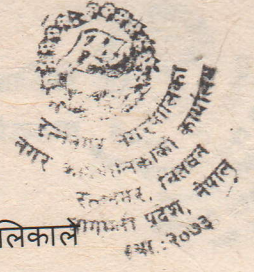 रत्ननगर नगरपालिका
नगर कार्यपालिकाको कार्यालय
रत्ननगर, चितवन
बागमती प्रदेश, नेपाल
स्था.:२०७३
लिकाले